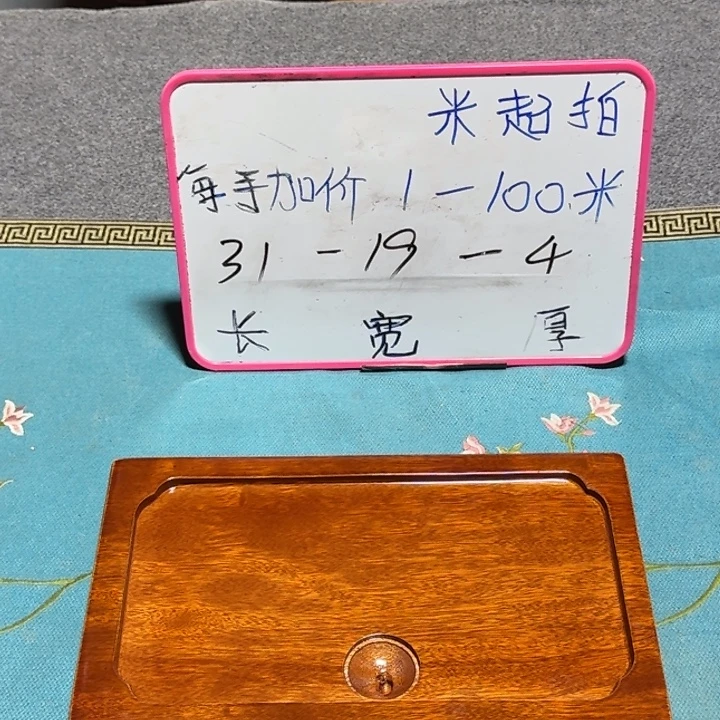 米起拍
每手加价1-100米
31-19-4
长 宽 厚